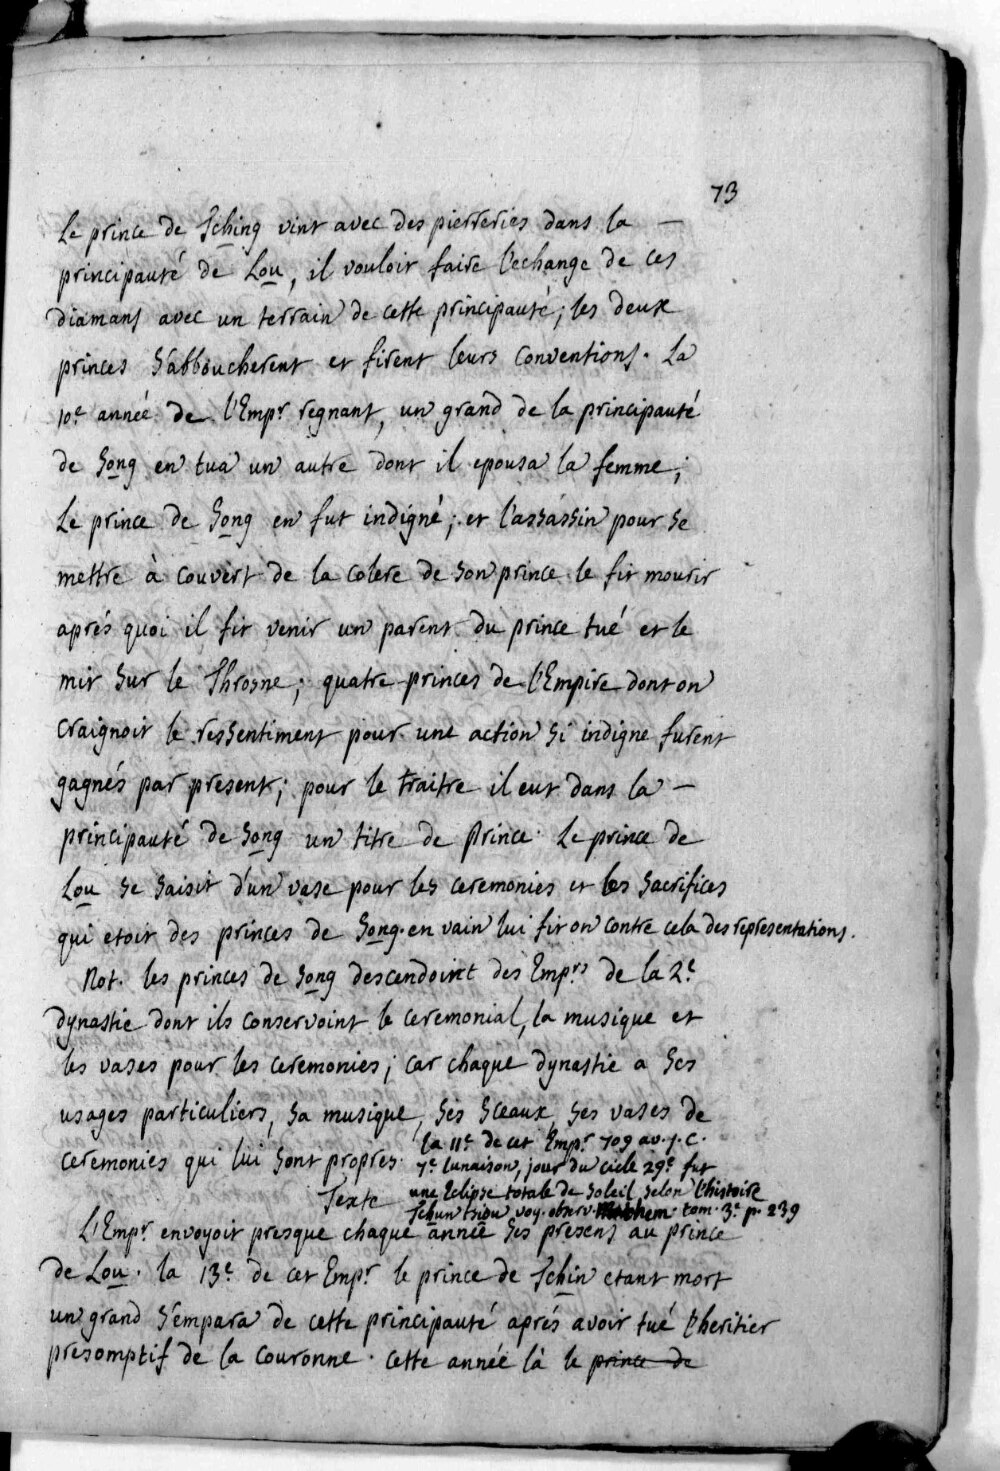 73
Le prince de Tching vint avec des pierreries dans la —
principauté de Lou, il vouloit faire l'echange de ces
diamans avec un terrain de cette principauté; les deux
princes s'abboucherent et firent leurs conventions. La
10.e année de l'Emp.r regnant, un grand de la principauté
de Song en tua un autre dont il epousa la femme;
Le prince de Song en fut indigné; et l'assassin pour se
mettre à couvert de la colere de son prince le fit mourir
aprés quoi il fit venir un parent du prince tué et le
mit sur le Throsne; quatre princes de l'Empire dont on
craignoit le ressentiment pour une action si indigne furent
gagnés par present; pour le traitre il eut dans la —
principauté de Song un titre de Prince. Le prince de
Lou se saisit d'un vase pour les ceremonies et les sacrifices
qui etoit des princes de Song. en vain lui fit on contre cela des representations.
Not. les princes de Song descendoint des Emp.rs de la 2.e
dynastie dont ils conservoint le ceremonial, la musique et
les vases pour les ceremonies; car chaque dynastie a ses
usages particuliers, sa musique, ses sceaux, ses vases de
ceremonies qui lui sont propres.
la 11.e de cet Emp.r 709 av. j. c.
7.e lunaison, jour du cicle 29.e fut
une Eclipse totale de Soleil, selon l'histoire
Tchun tsiou voy. observ. tom. 3.e p. 239
Texte
L'Emp.r envoyoit presque chaque année ses presens au prince
de Lou. la 13.e de cet Emp.r le prince de Tchin etant mort
un grand s'empara de cette principauté aprés avoir tué l'heritier
presomptif de la couronne. cette année là le prince de